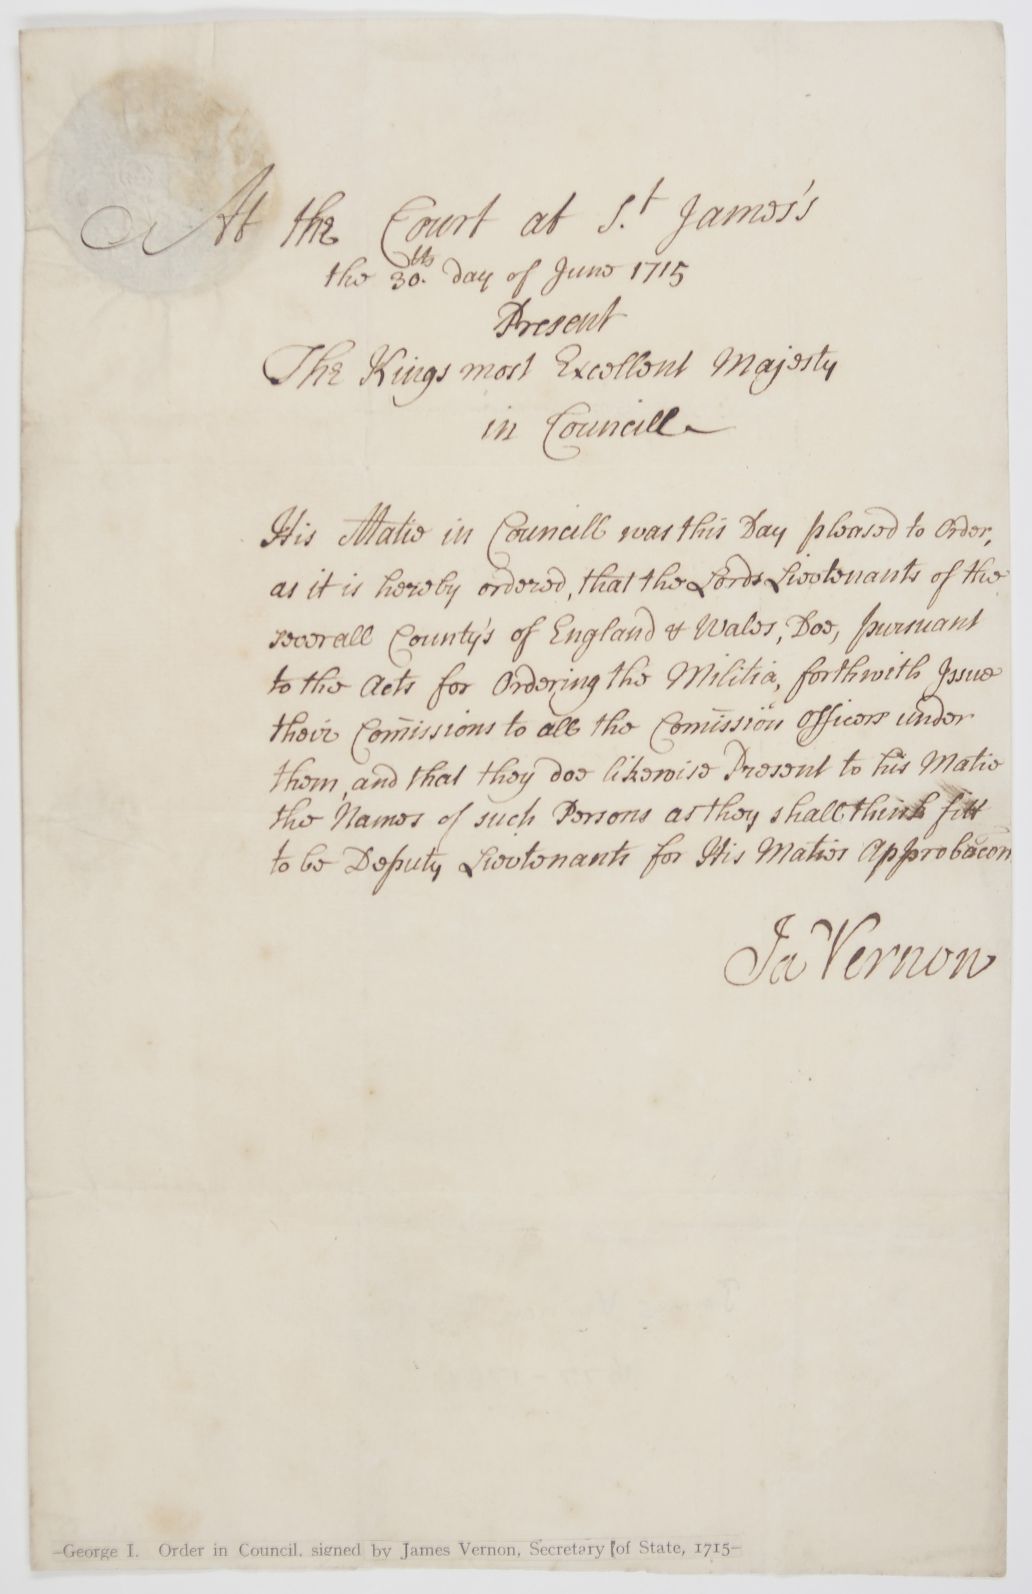 At the Court at St. James's
the 30th. day of June 1715
Present
The Kings most Excellent Majesty
in Councill
His Matie in Councill was this Day pleased to Order,
as it is hereby ordered, that the Lords Lieutenants of the
severall County's of England & Wales, Doe, pursuant
to the Acts for Ordering the Militia, forthwith Issue
their Com̄issions to all the Com̄ission Officers under
them, and that they doe likewise Present to his Matie
the Names of such Persons as they shall think fitt
to be Deputy Lieutenants for His Maties Approbac̄on
Ja Vernon
–George I. Order in Council, signed by James Vernon, Secretary of State, 1715–